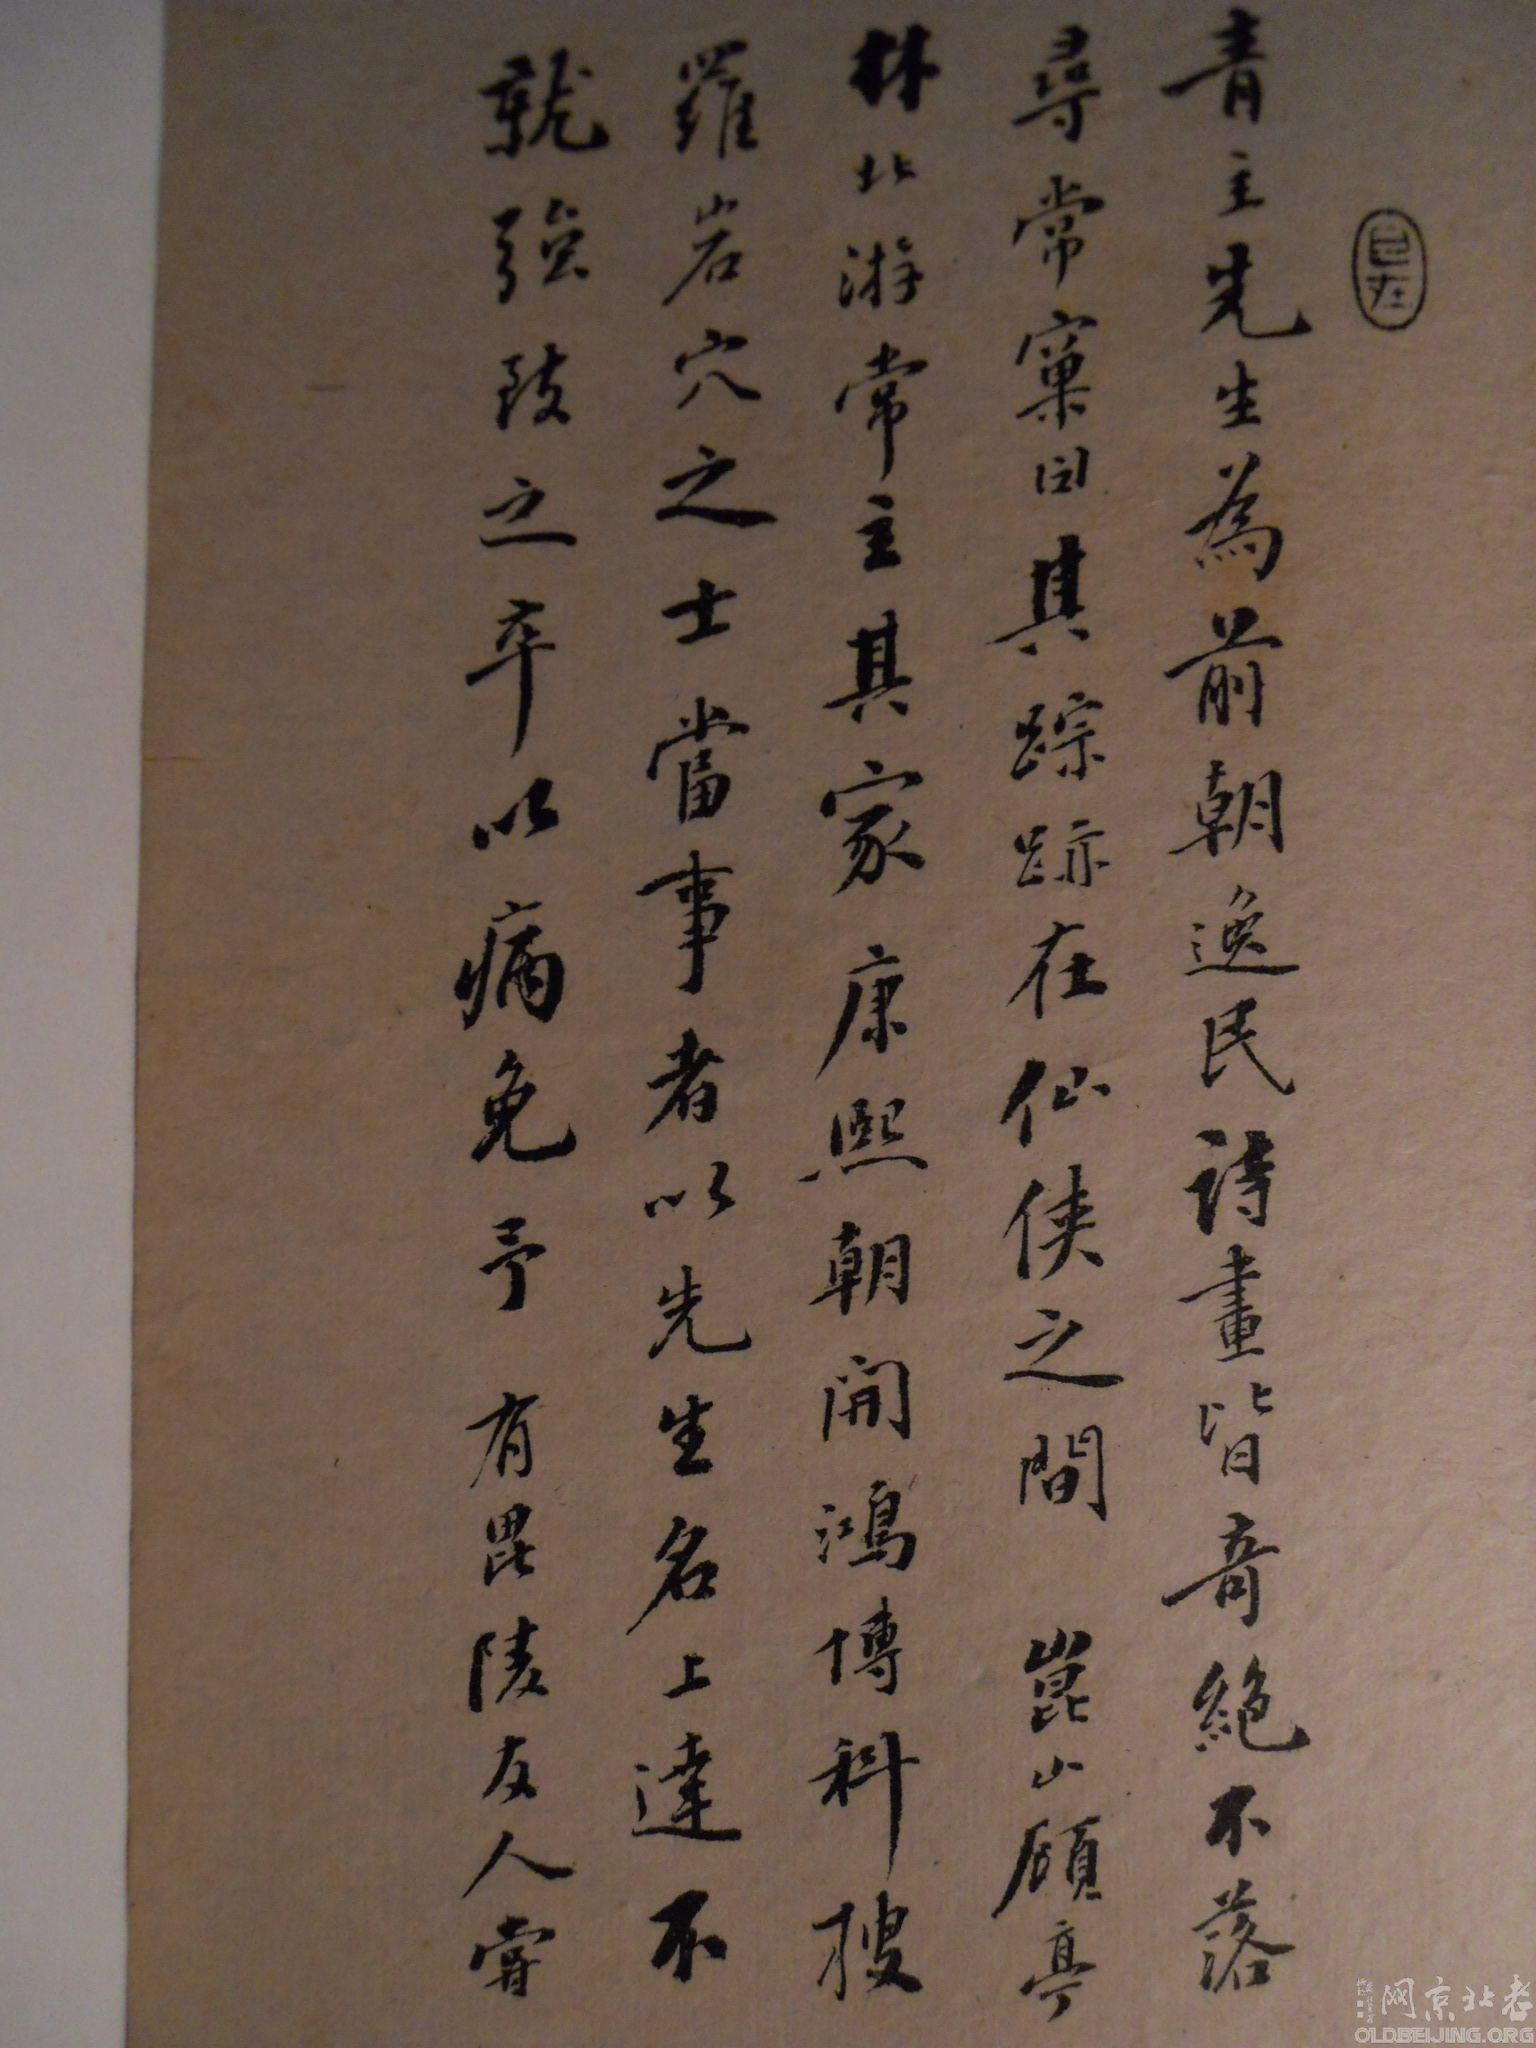 青主先生為前朝逸民詩畫皆奇絕不落
尋常窠臼其踪跡在仙俠之間崑山顧亭
林北游常主其家康熙朝開鴻博科搜
羅岩穴之士當事者以先生名上達不
就強致之卒以病免予有毘陵友人嘗
老北京网
OLDBEIJING.ORG